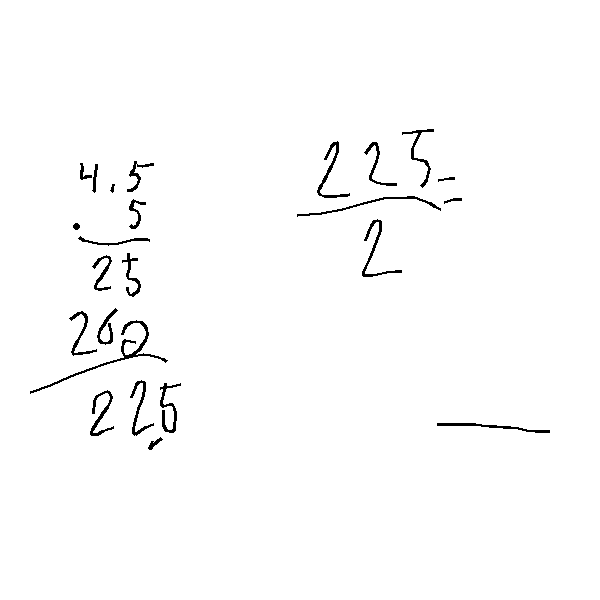 4.5
. 5
25
200
22.5
225 =
2